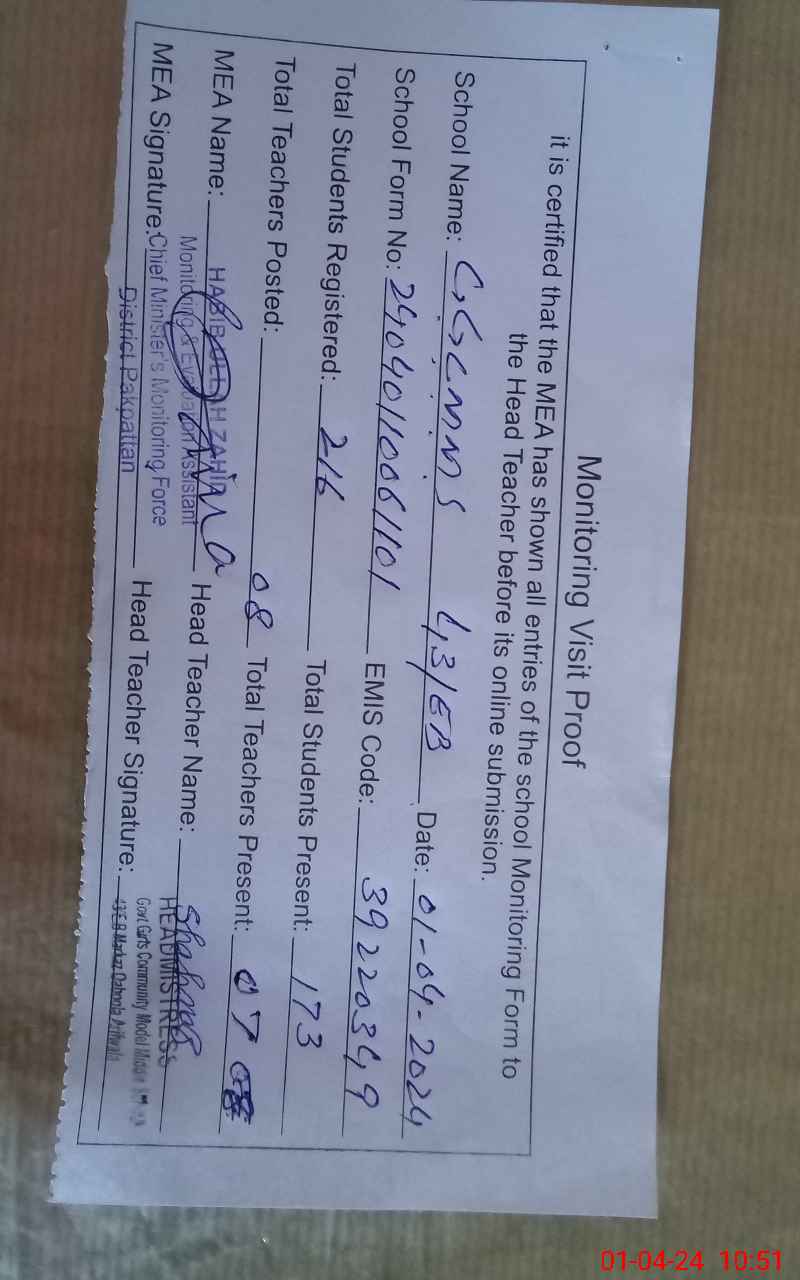 Monitoring Visit Proof
it is certified that the MEA has shown all entries of the school Monitoring Form to
the Head Teacher before its online submission.
School Name: G.G.C.M.M.S 43/EB Date: 01-04-2024
School Form No: 2404011061101 EMIS Code: 39220349
Total Students Registered: 216 Total Students Present: 173
Total Teachers Posted: 08 Total Teachers Present: 07
MEA Name: HABIB ULLAH ZAHID Head Teacher Name:
Monitoring & Evaluation Assistant
HEADMISTRESS
MEA Signature: Chief Minister's Monitoring Force Head Teacher Signature:
Govt. Girls Community Model
District Pakpattan
43 E.B Markaz Arifwala
01-04-24 10:51